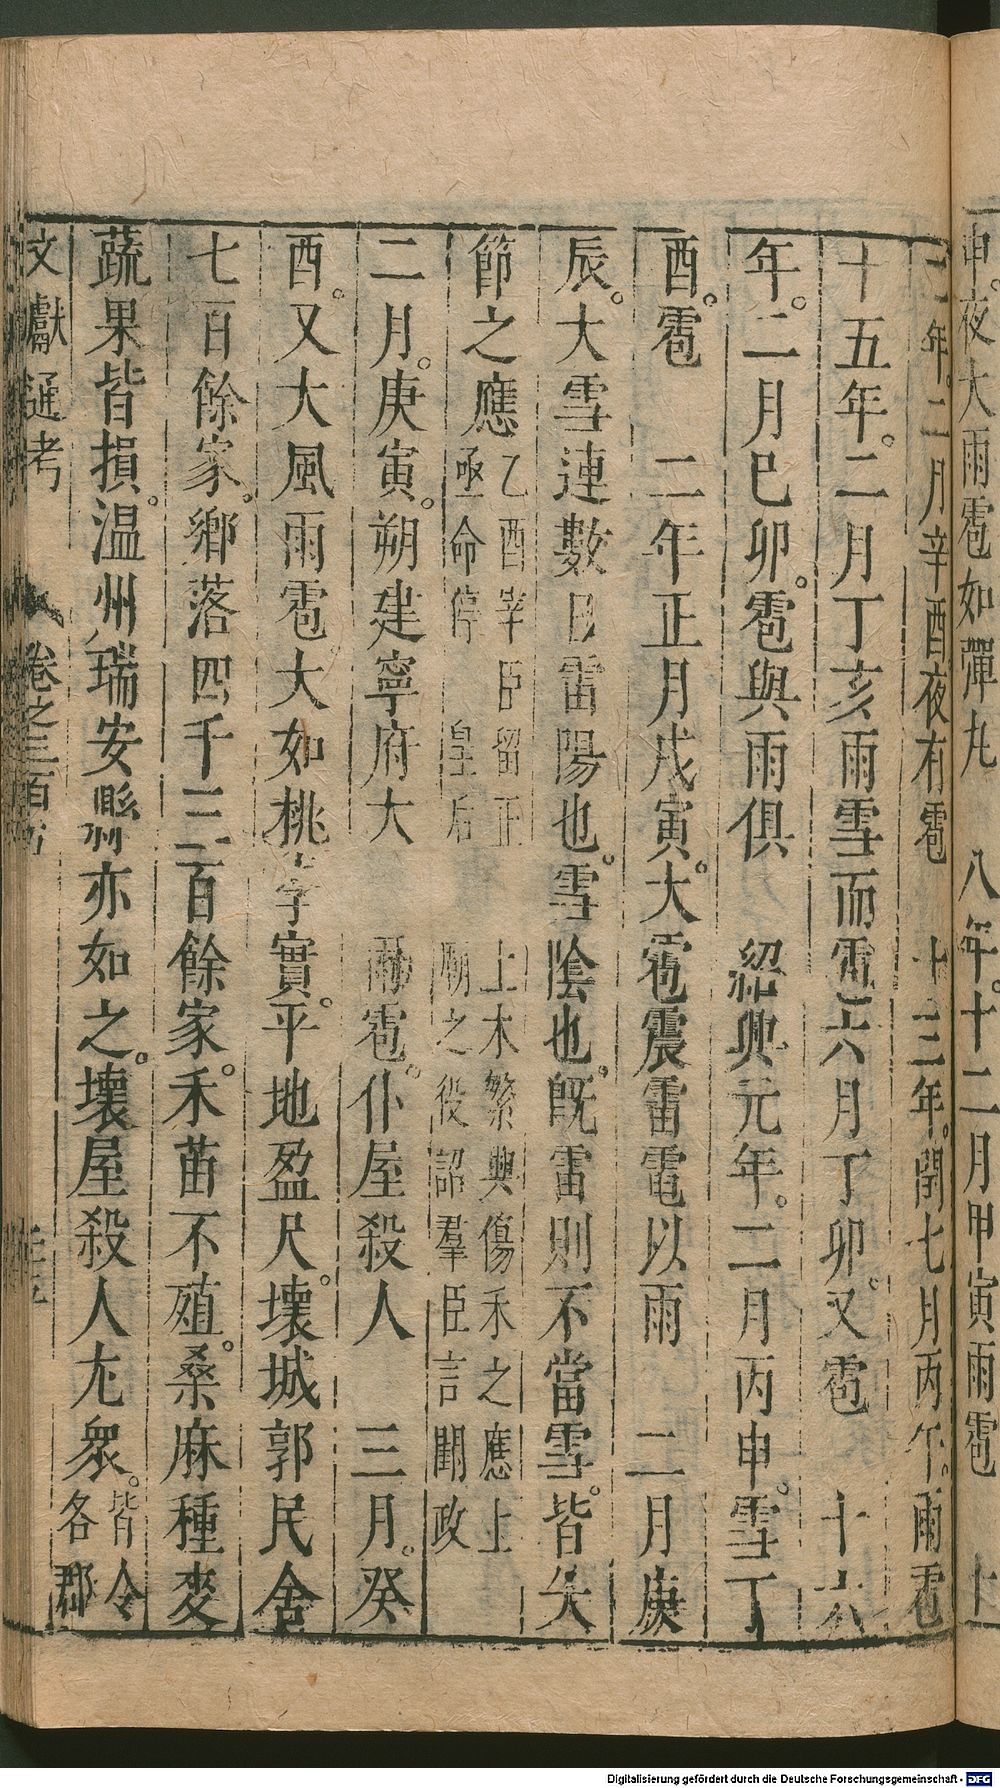 申。夜大雨雹如彈丸　八年。十二月甲寅雨雹　上
二年。二月辛酉夜有雹　十三年。閏七月丙午。雨雹
十五年。二月丁亥雨雪而雹六月丁卯。又雹　十六
年。二月巳卯。雹與雨俱　紹興元年。二月丙申。雪丁
酉。雹　二年正月戊寅。大雹震雷電以雨　二月庚
辰。大雪連數日雷陽也。雪陰也。既雷則不當雪。皆失
節之應乙酉宰臣留正亟命停皇后上木繁興傷禾之應上廟之役詔羣臣言闕政
二月。庚寅。朔建寧府大雨雹。仆屋殺人　三月。癸
酉。又大風雨雹。大如桃李實。平地盈尺。壞城郭民舍
七百餘家。鄉落四千三百餘家。禾苗不殖。桑麻種麥
蔬果皆損。温州瑞安縣亦如之。壞屋殺人尢衆。皆令各郡
文獻通考　卷之三百五
Digitalisierung gefördert durch die Deutsche Forschungsgemeinschaft - DFG